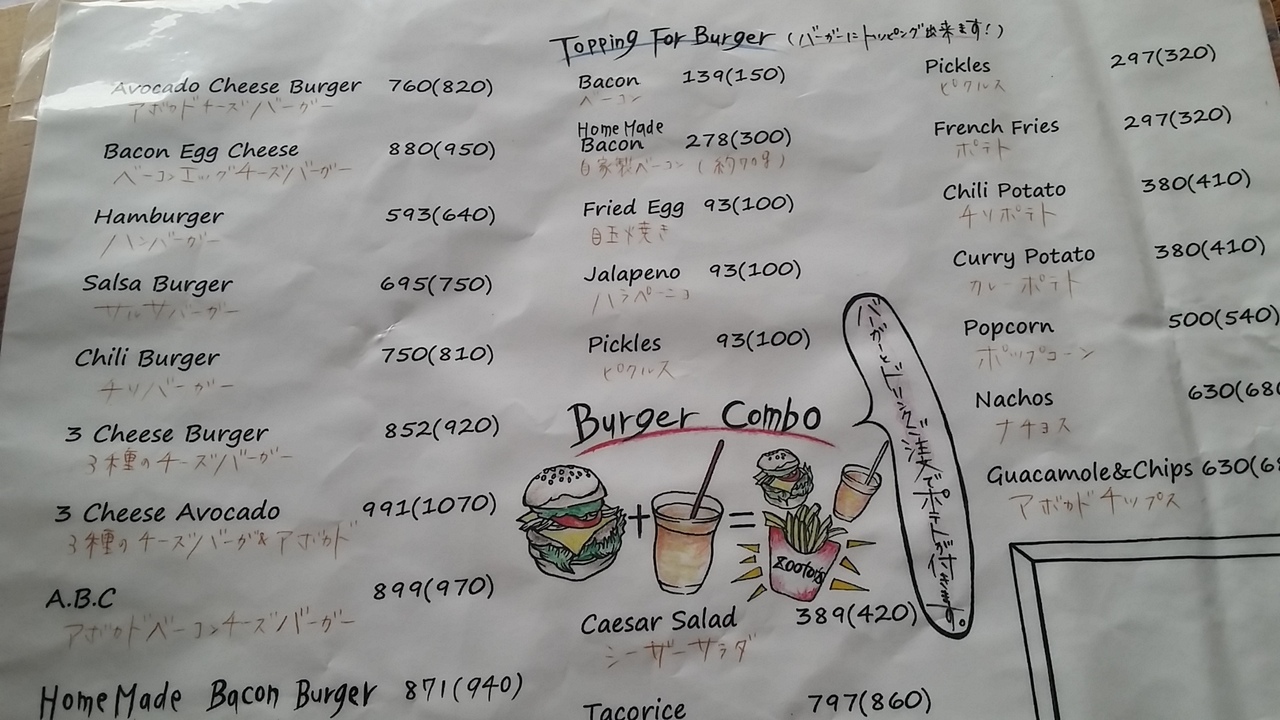 Avocado Cheese Burger 760(820)
アボカドチーズバーガー
Bacon Egg Cheese 880(950)
ベーコンエッグチーズバーガー
Hamburger 593(640)
ハンバーガー
Salsa Burger 695(750)
サルサバーガー
Chili Burger 750(810)
チリバーガー
3 Cheese Burger 852(920)
3種のチーズバーガー
3 Cheese Avocado 991(1070)
3種のチーズバーガ&アボカド
A.B.C 899(970)
アボカドベーコンチーズバーガー
Home Made Bacon Burger 871(940)
Topping For Burger (バーガーにトッピング出来ます!)
Bacon 139(150)
ベーコン
Home Made
Bacon 278(300)
自家製ベーコン (約70g)
Fried Egg 93(100)
目玉焼き
Jalapeno 93(100)
ハラペーニョ
Pickles 93(100)
ピクルス
Burger Combo
バーガーとドリンクご注文でポテトが付きます。
ZOOTONS
Caesar Salad 389(420)
シーザーサラダ
Tacorice 797(860)
Pickles 297(320)
ピクルス
French Fries 297(320)
ポテト
Chili Potato 380(410)
チリポテト
Curry Potato 380(410)
カレーポテト
Popcorn 500(540)
ポップコーン
Nachos 630(68
ナチョス
Guacamole&Chips 630(6
アボカドチップス